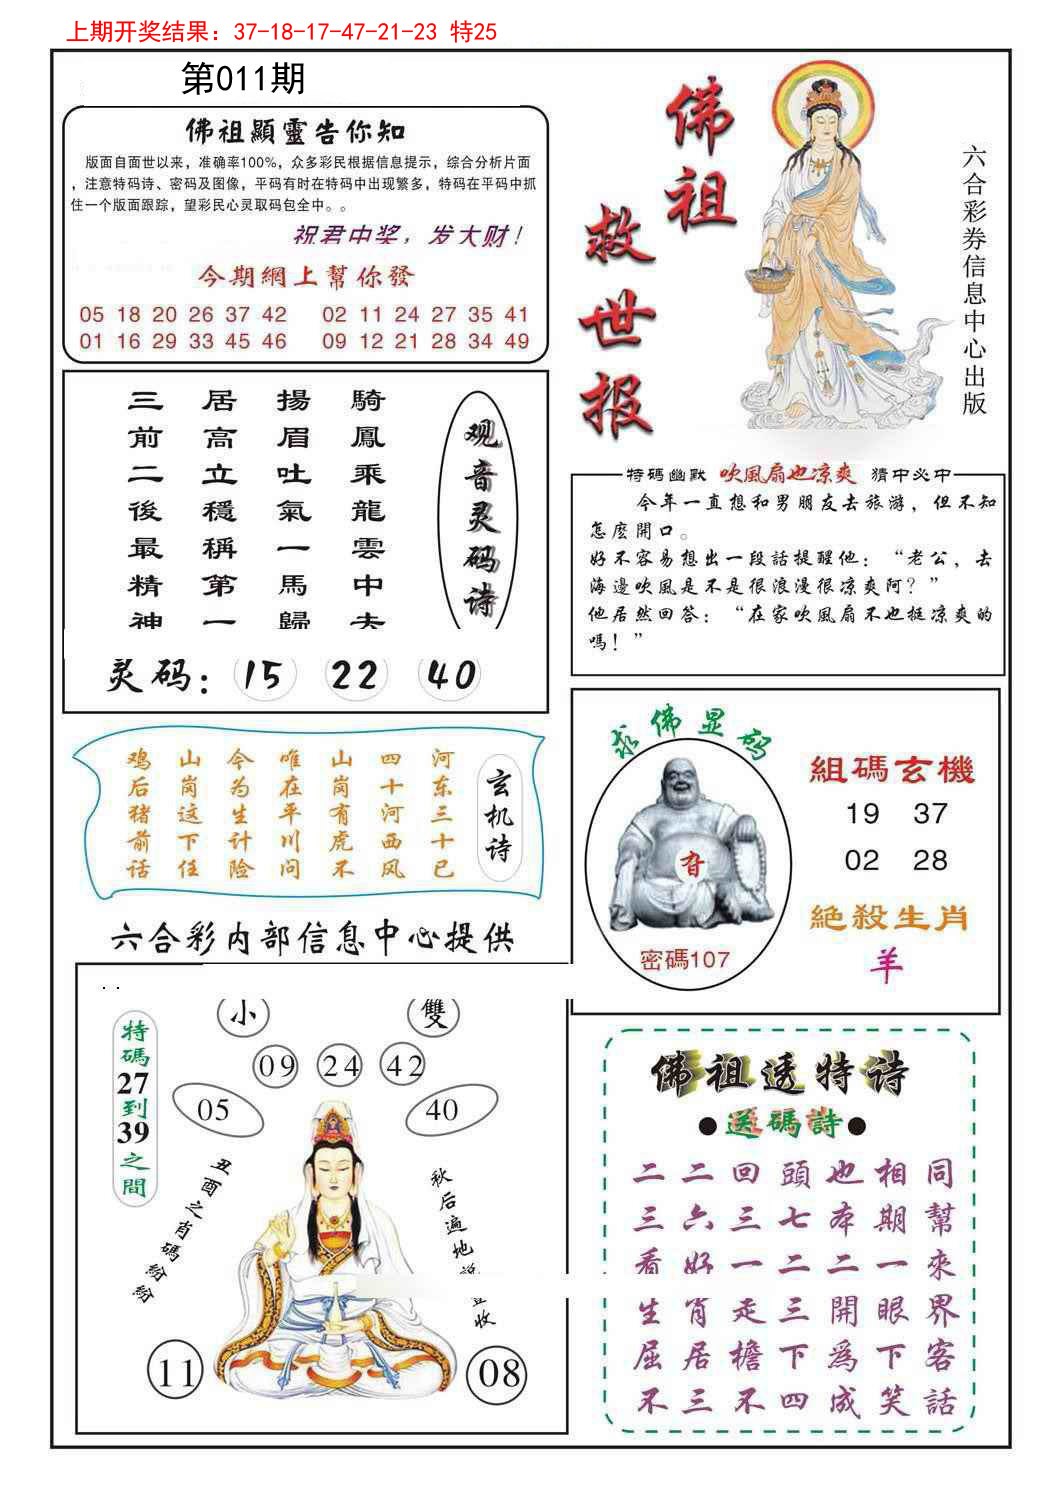 上期开奖结果：37-18-17-47-21-23 特25
第011期
佛祖顯靈告你知
版面自面世以来，准确率100%，众多彩民根据信息提示，综合分析片面
，注意特码诗、密码及图像，平码有时在特码中出现繁多，特码在平码中抓
住一个版面跟踪，望彩民心灵取码包全中。。
祝君中奖，发大财！
今期網上幫你發
05 18 20 26 37 42 02 11 24 27 35 41
01 16 29 33 45 46 09 12 21 28 34 49
佛祖
救世报
六合彩券信息中心出版
观音灵码诗
騎鳳乘龍雲中夫
揚眉吐氣一馬歸
居高立穩稱第一
三前二後最精神
灵码：15 22 40
特碼幽默 吹風扇也凉爽 猜中必中
今年一直想和男朋友去旅游，但不知
怎麽開口。
好不容易想出一段話提醒他：“老公，去
海邊吹風是不是很浪漫很凉爽阿？”
他居然回答：“在家吹風扇不也挺凉爽的
嗎！”
玄机诗
河东三十已
四十河西风
山岗有虎不
唯在平川问
今为生计险
山岗这下任
鸡后猪前话
求佛显码
密碼107
組碼玄機
19 37
02 28
絕殺生肖
羊
六合彩内部信息中心提供
. .
小 雙
09 24 42
05 40
特碼27到39之間
丑酉之肖碼紛紛
秋后遍地
收
11 08
佛祖透特诗
●送碼詩●
二二回頭也相同
三六三七本期幫
看好一二二一來
生肖走三開眼界
屈居檐下爲下客
不三不四成笑話